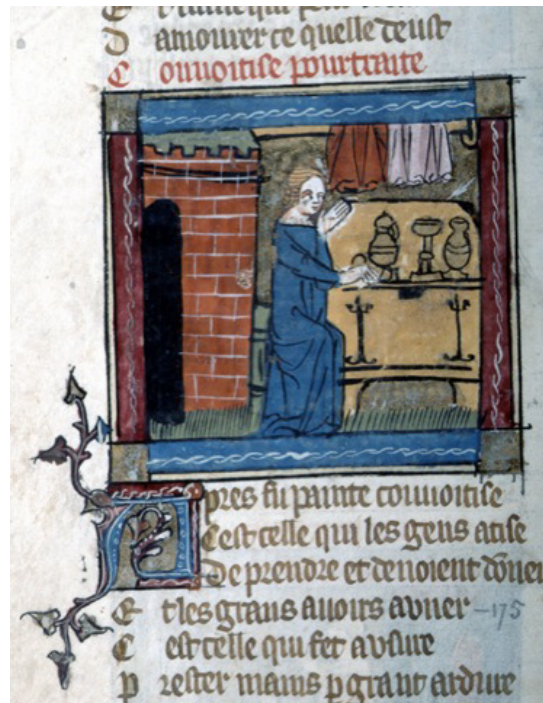 D amourer ce quelle deust
C onuoitise pourtraite
Apres fu painte couuoitise
Cest celle qui les gens atise
De prendre et denoient doner
E t les grans auoirs auner -175
C est celle qui fet a usure
P rester mains p grant ardure